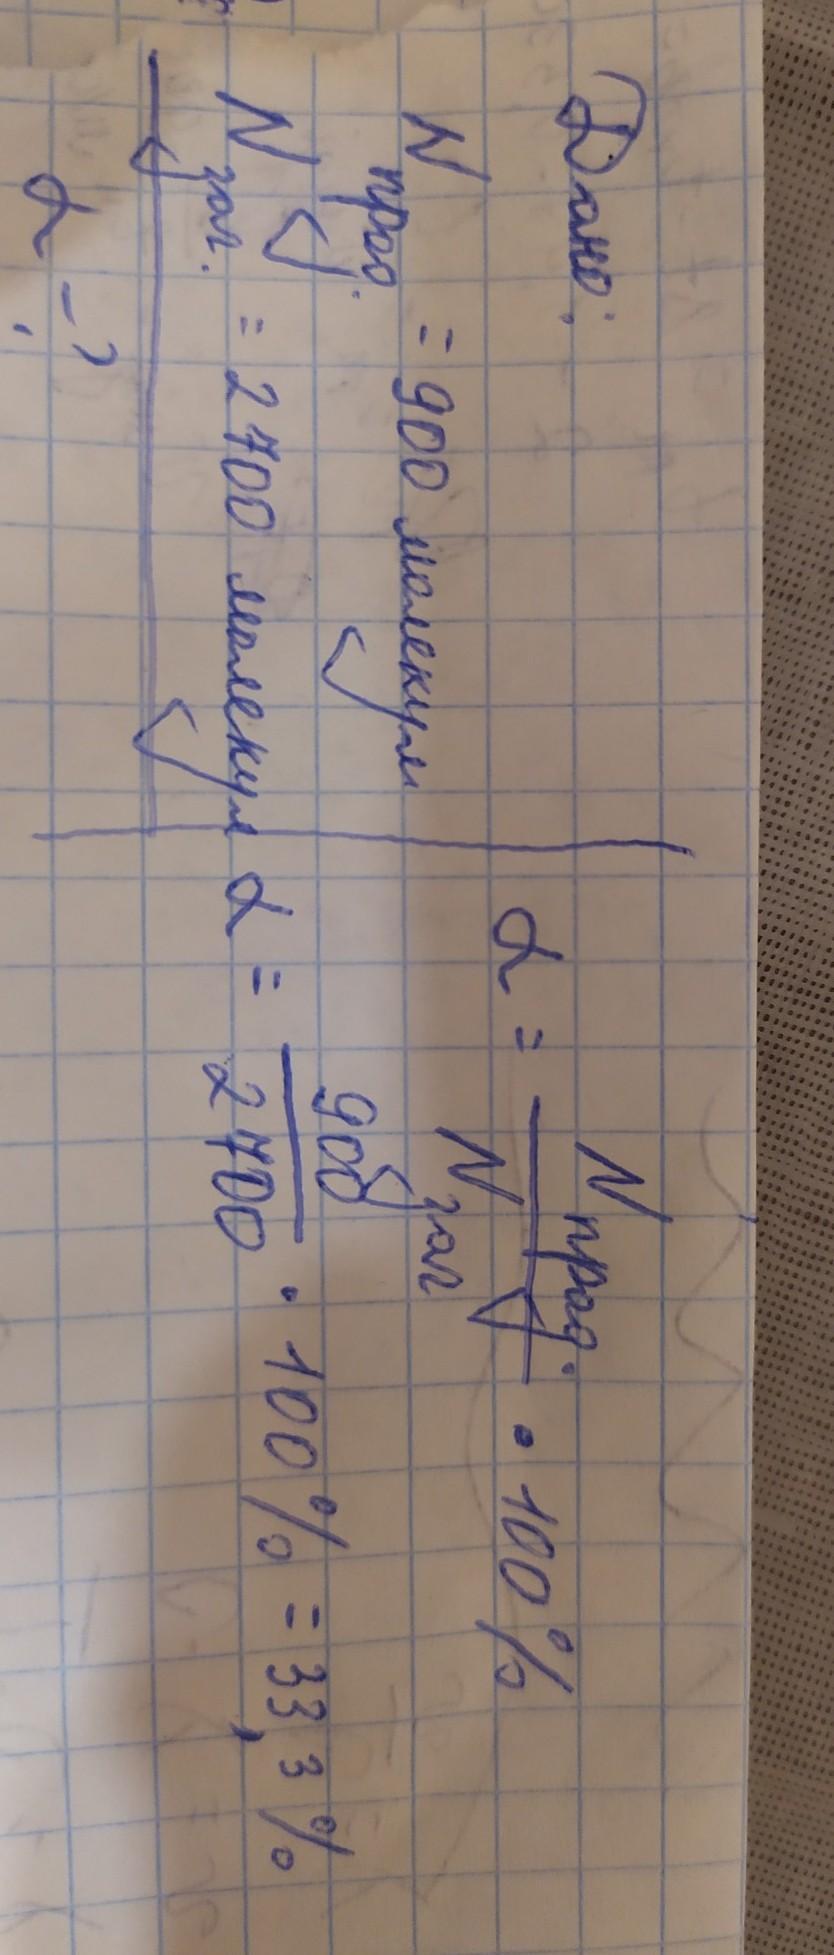 Дано:
N прод. = 900 молекул
N заг. = 2700 молекул
α - ?
α = N прод. / N заг · 100%
α = 900 / 2700 · 100% = 33,3%